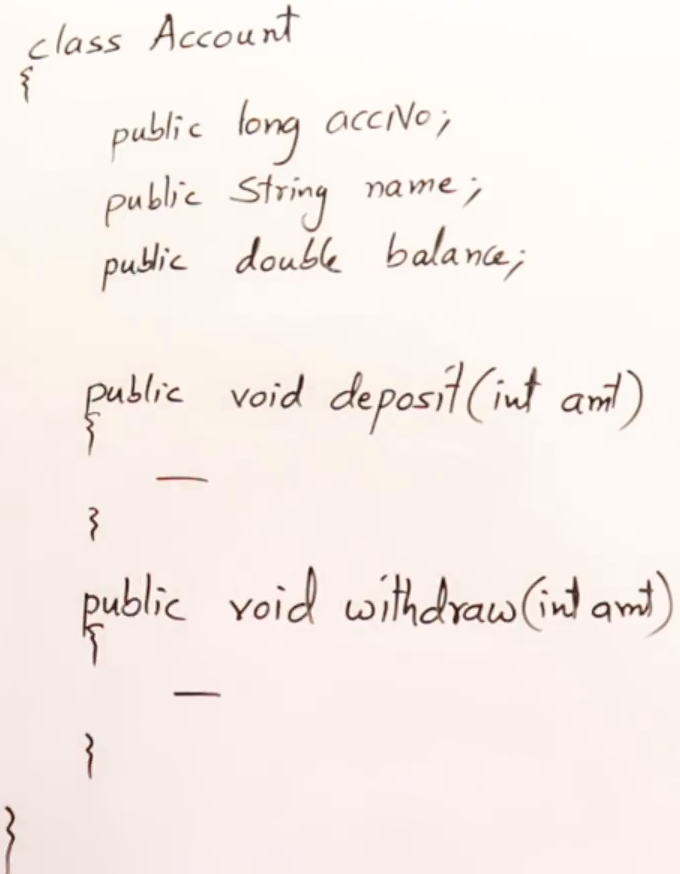 class Account
{
public long accNo;
public String name;
public double balance;
public void deposit(int amt)
{
—
}
public void withdraw(int amt)
{
—
}
}